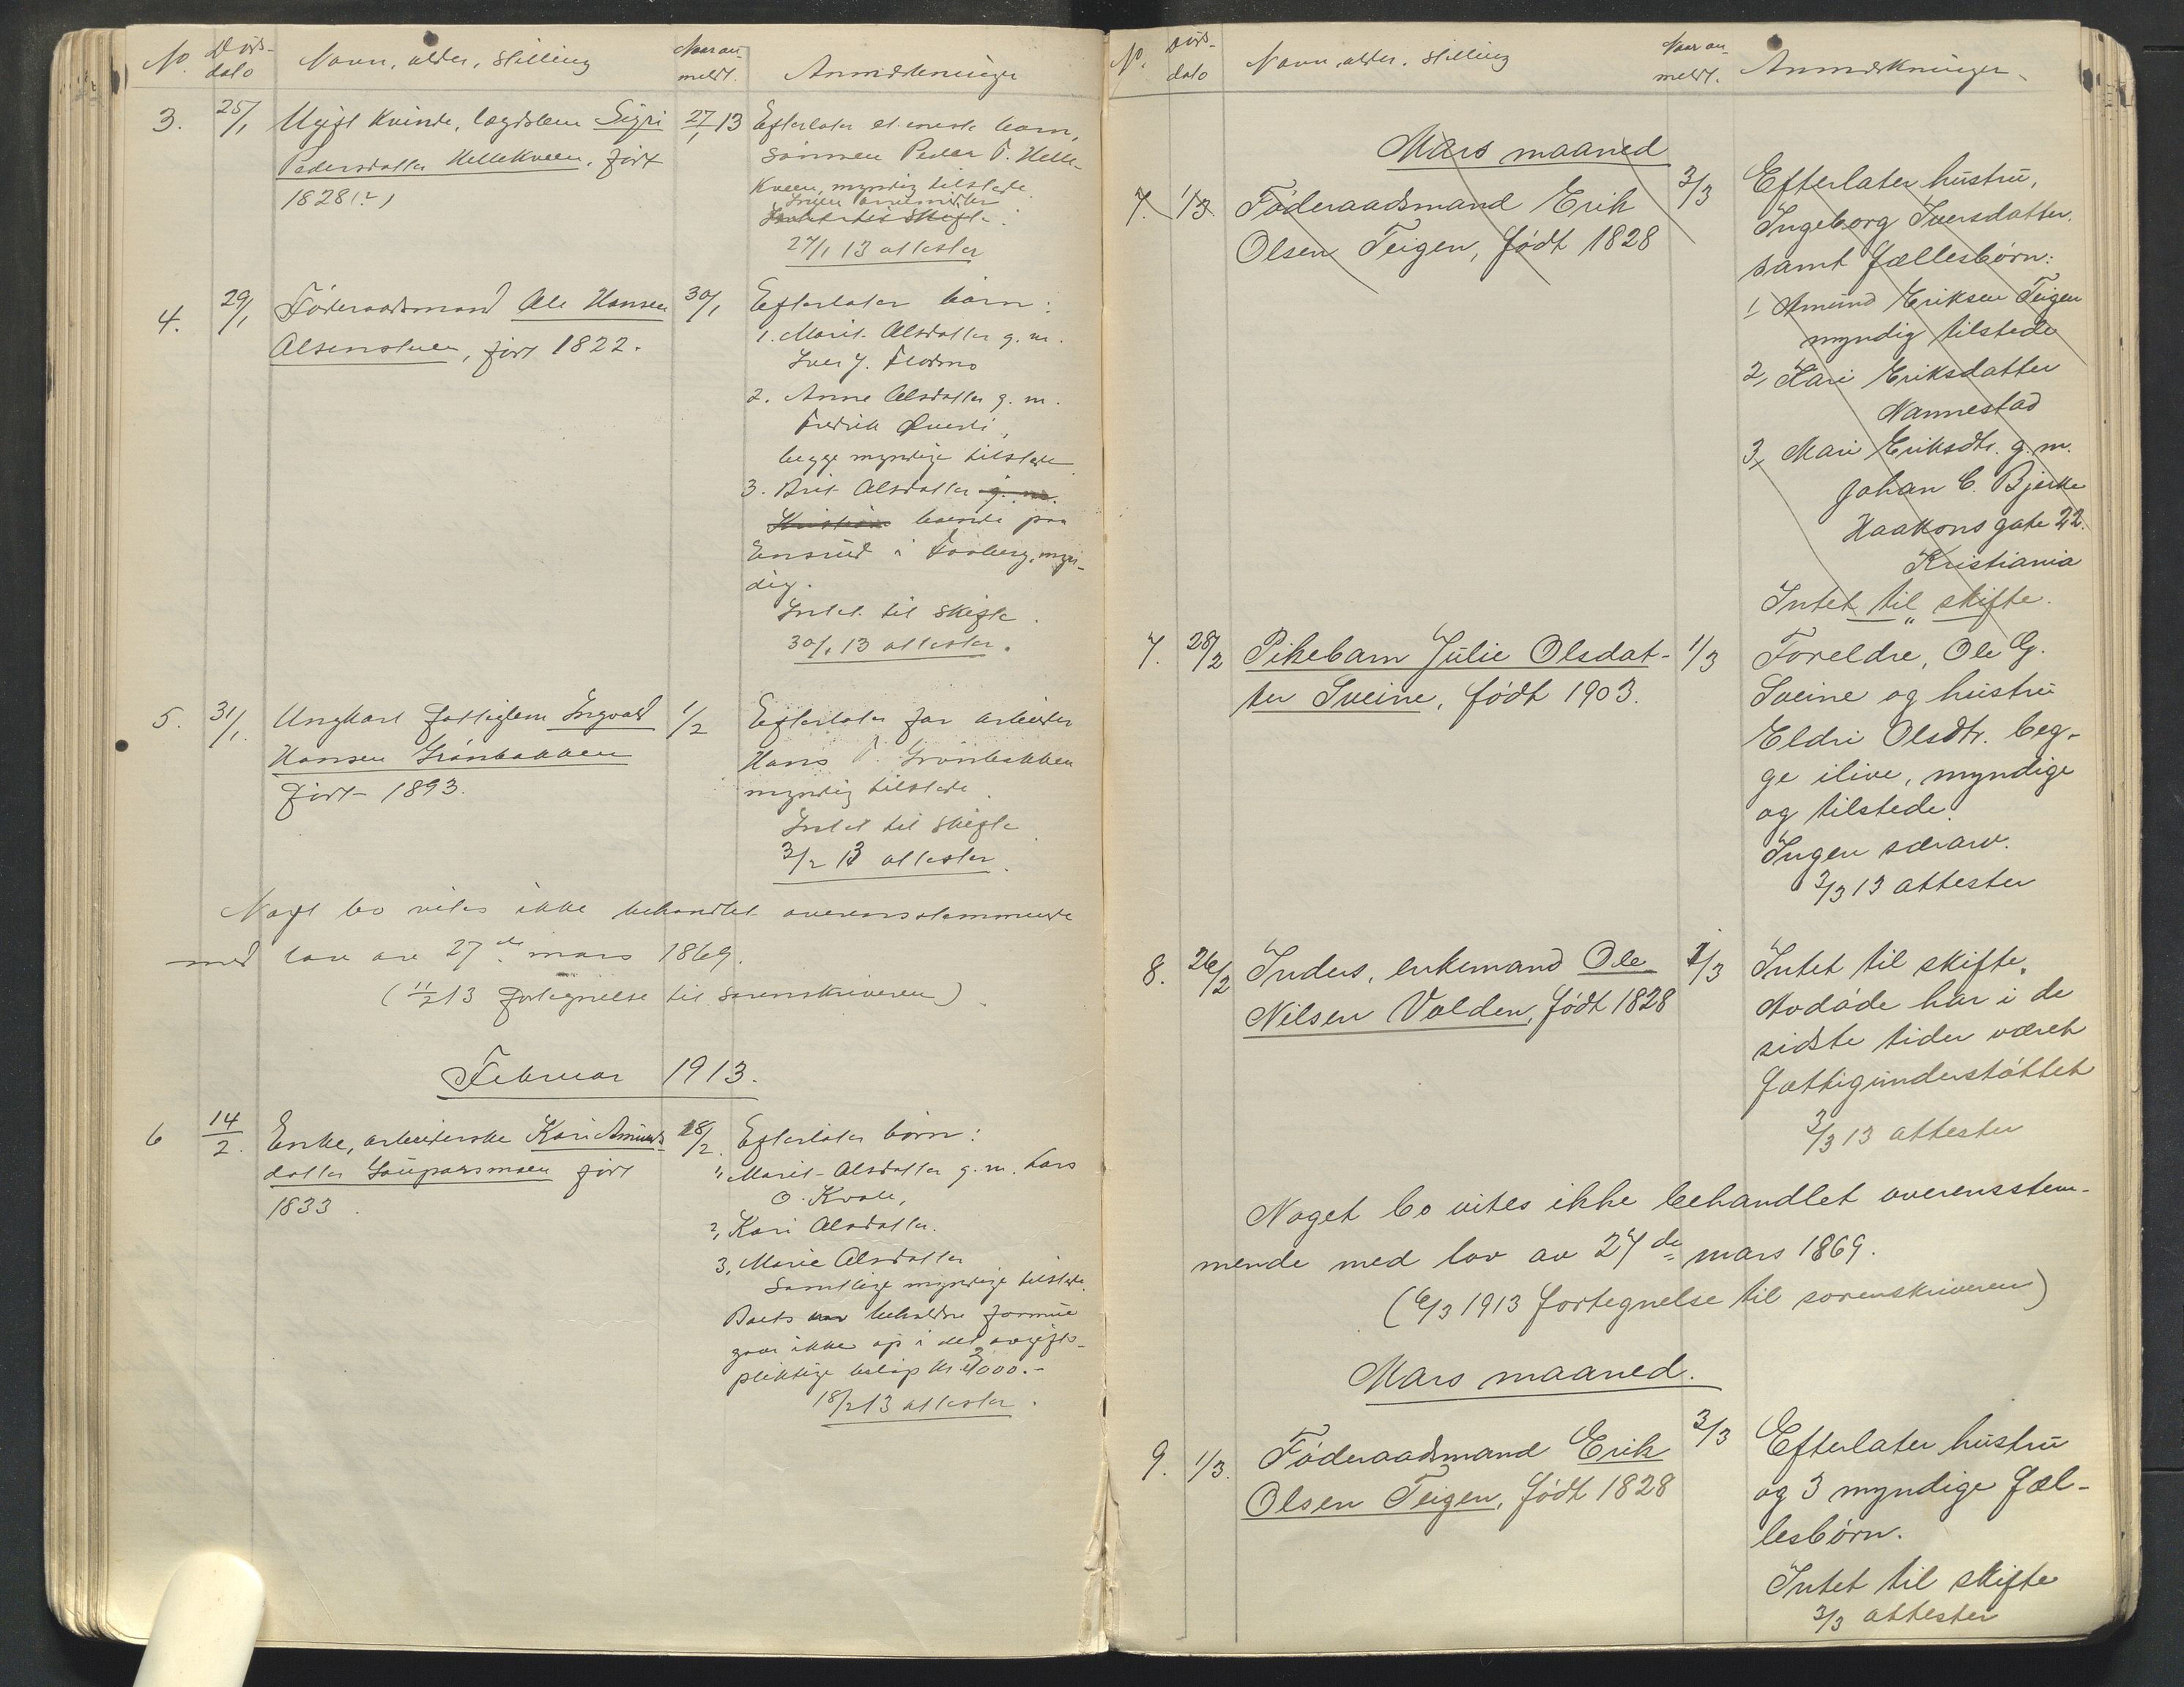 No. Döds-
dato
Navn, alder, stilling
Naar an-
meldt.
Anmerkninger
3. 25/1 Ugift kvinde, lægdslem Sigri
Pedersdatter Hellekveen, født
1828(?)
27/1 13
Efterlater et eneste barn,
sönnen Peder T. Helle-
kveen, myndig tilstede
Ingen arvemidler
Intet til skifte.
27/1 13 attester
4. 29/1 Föderaadsmand Ole Hansen
Olsenstuen, født 1822.
30/1
Efterlater børn:
1. Marit Olsdatter g. m.
Iver J. Flodmo
2. Anne Olsdatter g. m.
Fredrik
begge myndige tilstede
3. Brit Olsdatter g. m.
Kristian boende paa
Ensrud i Faaberg, myn-
dig.
Intet til skifte.
30/1 13 attester.
5. 31/1. Ungkarl fattiglem Ingvald
Hansen Grönbakken
født 1893.
1/2
Efterlater far arbeider
Hans T. Grönbakken
myndig tilstede.
Intet til skifte.
3/2 13 attester.
Noget bo vites ikke behandlet overensstemmende
med lov av 27de mars 1869.
(11/2 13 fortegnelse til sorenskriveren).
Februar 1913.
6 14/2. Enke, arbeiderske Kari Amunds-
datter født
1833.
18/2.
Efterlater børn:
1, Marit Olsdatter g. m. Lars
O. Kvale,
2, Kari Olsdatter.
3, Marie Olsdatter
Samtlige myndige tilstede.
Boets beholdne formue
gaar ikke op i det avgifts-
pliktige beløp kr 2000.-
18/2 13 attester.
No. Döds-
dato
Navn, alder, stilling
Naar an-
meldt.
Anmerkninger.
Mars maaned
7. 1/3. Föderaadsmand Erik
Olsen Teigen, født 1828
3/3
Efterlater hustru,
Ingeborg Iversdatter.
samt fællesbörn:
1 Amund Eriksen Teigen
myndig tilstede
2, Kari Eriksdatter
Nannestad
3, Mari Eriksdtr. g. m.
Johan C. Bjerke
Haakons gate 22.
Kristiania
Intet til skifte.
7. 28/2 Pikebarn Julie Olsdat-
ter Sveine, født 1903.
1/3
Foreldre, Ole G.
Sveine og hustru
Eldri Olsdtr. beg-
ge ilive, myndige
og tilstede.
Ingen særarv.
3/3 13 attester
8. 26/2 Inders. enkemand Ole
Nilsen Volden, født 1828
1/3
Intet til skifte.
Avdöde har i de
sidste tider været
fattigunderstöttet
3/3 13 attester
Noget bo vites ikke behandlet overensstem-
mende med lov av 27de mars 1869.
(6/3 1913 fortegnelse til sorenskriveren)
Mars maaned.
9. 1/3. Föderaadsmand Erik
Olsen Teigen, født 1828
3/3
Efterlater hustru
og 3 myndige fæl-
lesbörn.
Intet til skifte
3/3 attester